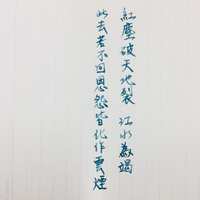 紅塵破天地裂 江水為竭
此去若不回恩怨皆化作雲煙